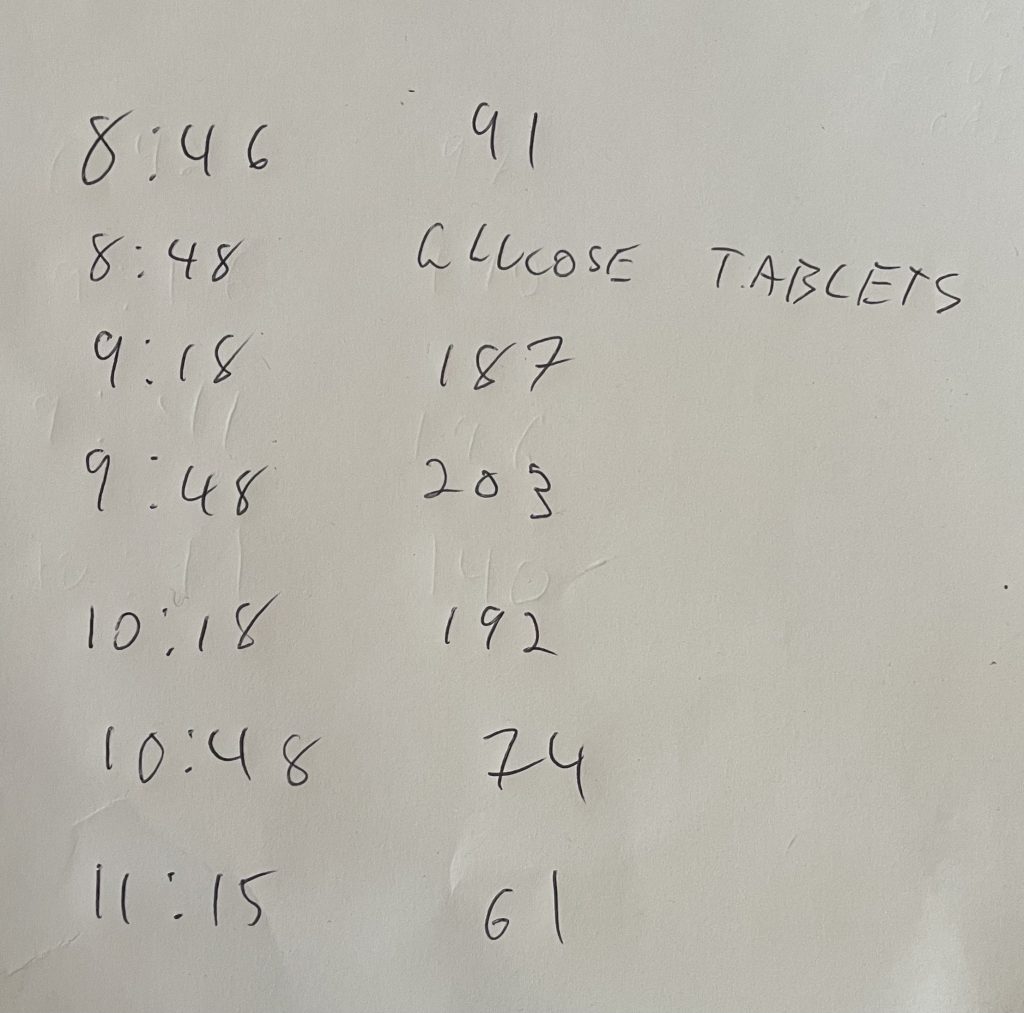 8:46 91
8:48 GLUCOSE TABLETS
9:18 187
9:48 203
10:18 192
10:48 74
11:15 61